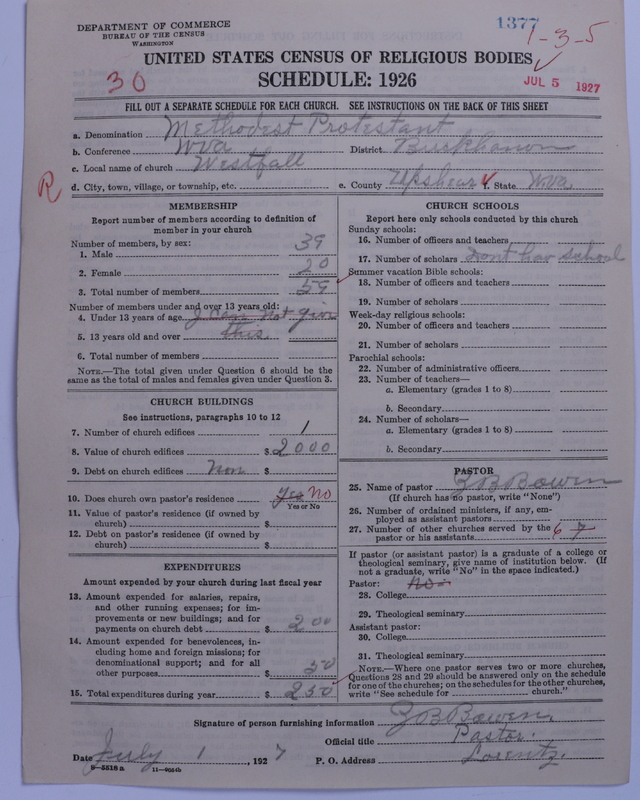 DEPARTMENT OF COMMERCE
BUREAU OF THE CENSUS
WASHINGTON
1377
1-3-5
UNITED STATES CENSUS OF RELIGIOUS BODIES
30
SCHEDULE: 1926
JUL 5 1927
FILL OUT A SEPARATE SCHEDULE FOR EACH CHURCH. SEE INSTRUCTIONS ON THE BACK OF THIS SHEET
a. Denomination Methodest Protestant
b. Conference WVa District Buckhanon
c. Local name of church Westfall
R
d. City, town, village, or township, etc. e. County Upshear f. State WVa
MEMBERSHIP
Report number of members according to definition of
member in your church
Number of members, by sex:
1. Male 39
2. Female 20
3. Total number of members 59
Number of members under and over 13 years old:
4. Under 13 years of age I can not give
5. 13 years old and over this.
6. Total number of members
NOTE.—The total given under Question 6 should be
the same as the total of males and females given under Question 3.
CHURCH BUILDINGS
See instructions, paragraphs 10 to 12
7. Number of church edifices 1
8. Value of church edifices $2000
9. Debt on church edifices Non $
10. Does church own pastor's residence Yes No
Yes or No
11. Value of pastor's residence (if owned by
church) $
12. Debt on pastor's residence (if owned by
church) $
EXPENDITURES
Amount expended by your church during last fiscal year
13. Amount expended for salaries, repairs,
and other running expenses; for im-
provements or new buildings; and for
payments on church debt $ 200
14. Amount expended for benevolences, in-
cluding home and foreign missions; for
denominational support; and for all
other purposes $ 50
15. Total expenditures during year $ 250
CHURCH SCHOOLS
Report here only schools conducted by this church
Sunday schools:
16. Number of officers and teachers
17. Number of scholars Dont hav school
Summer vacation Bible schools:
18. Number of officers and teachers
19. Number of scholars
Week-day religious schools:
20. Number of officers and teachers
21. Number of scholars
Parochial schools:
22. Number of administrative officers
23. Number of teachers—
a. Elementary (grades 1 to 8)
b. Secondary
24. Number of scholars—
a. Elementary (grades 1 to 8)
b. Secondary
PASTOR
25. Name of pastor Z B Bowen
(If church has no pastor, write "None")
26. Number of ordained ministers, if any, em-
ployed as assistant pastors
27. Number of other churches served by the
pastor or his assistants 6 7
If pastor (or assistant pastor) is a graduate of a college or
theological seminary, give name of institution below. (If
not a graduate, write "No" in the space indicated.)
Pastor: No
28. College
29. Theological seminary
Assistant pastor:
30. College
31. Theological seminary
NOTE.—Where one pastor serves two or more churches,
Questions 28 and 29 should be answered only on the schedule
for one of the churches; on the schedules for the other churches,
write "See schedule for church."
Signature of person furnishing information Z B Bowen.
Official title Pastor.
Date July 1, 1927 P. O. Address Lorentz.
8—5518 a 11—9064b